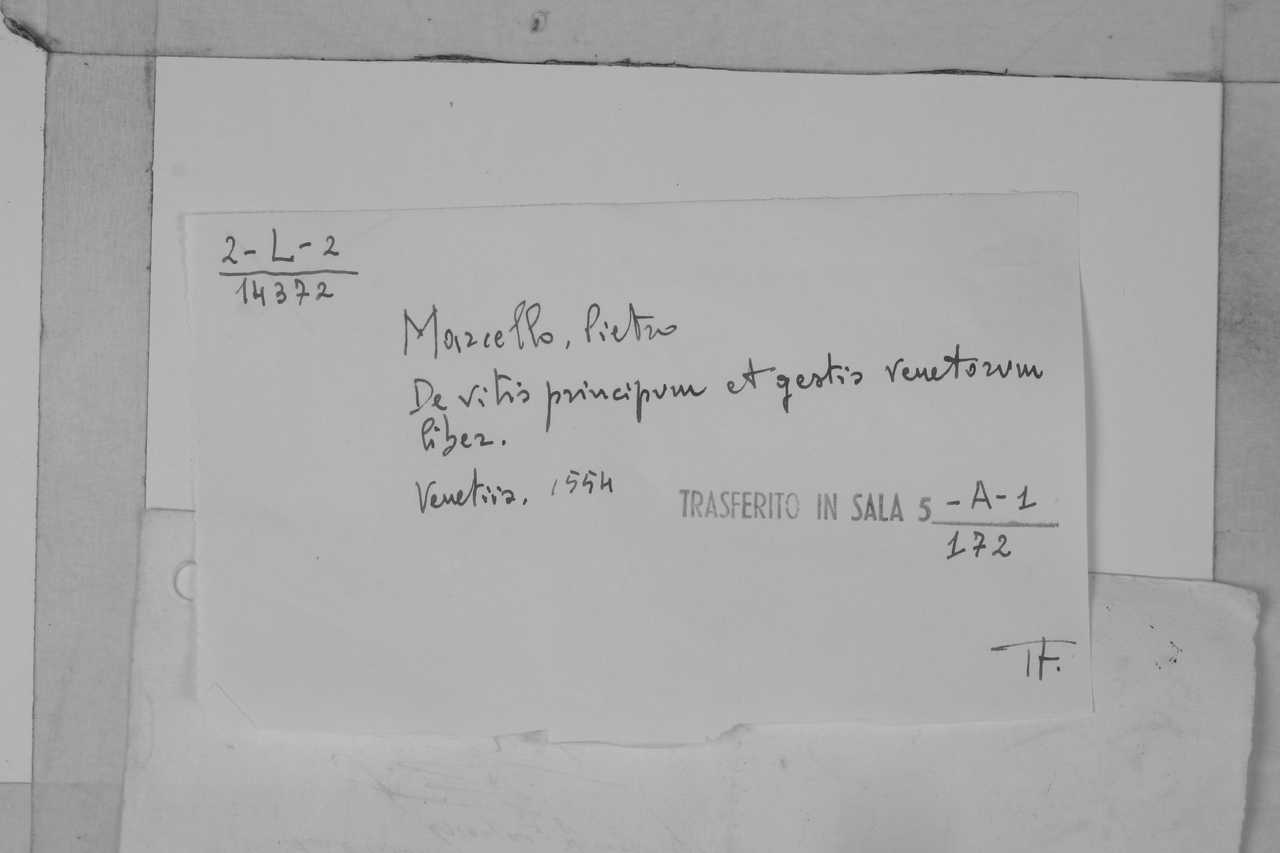 2-L-2
14372
Marcello, Pietro
De vitis principum et gestis venetorum
liber.
Venetiis, 1554
TRASFERITO IN SALA 5-A-1
172
TF.